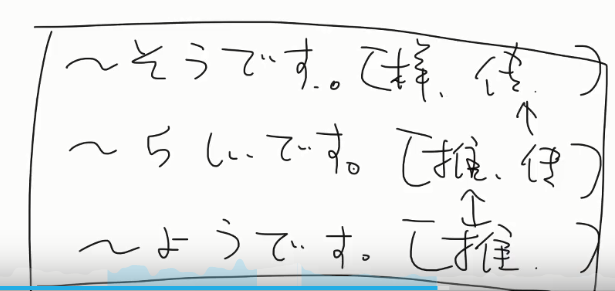 〜そうです。〔様、伝 〕
↑
〜らしいです。〔推、伝〕
↕
〜ようです。〔推 〕